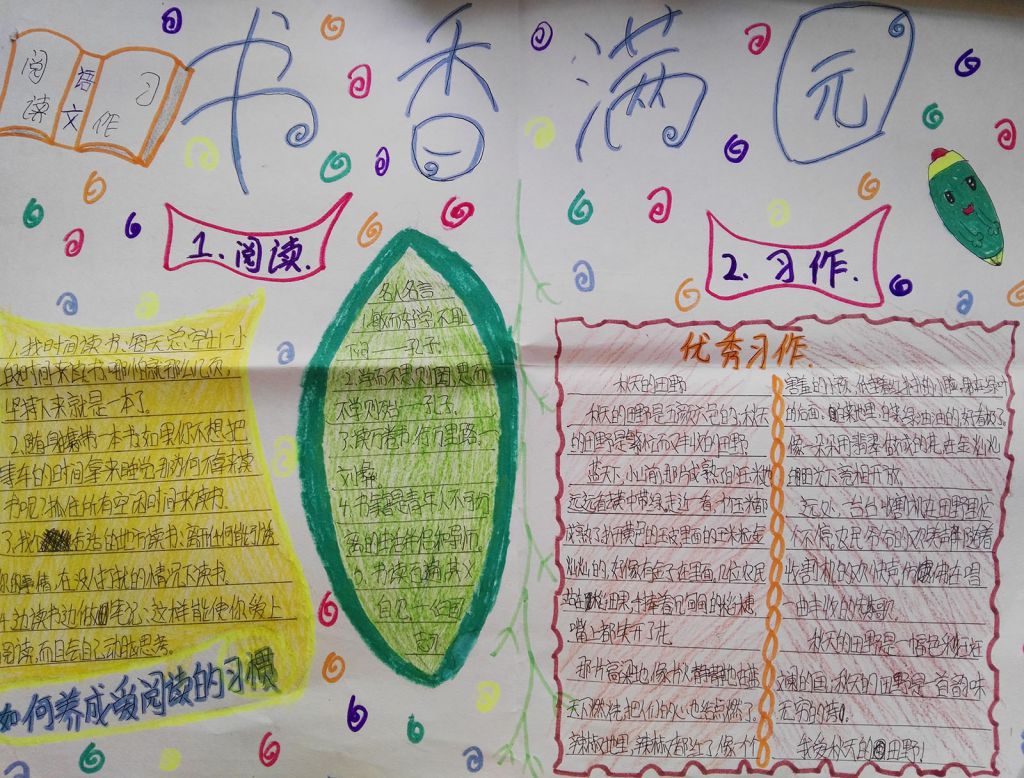 书香满园
阅读
语文
习作
1.阅读.
1.找时间读书、每天总空出一小
段时间来良书,哪怕就那么几页,
坚持下来就是一本了。
2.随身携带一本书,如果你不想把
等车的时间拿来睡觉,那为何不拿来读
书呢?抓住所有空闲时间来读书。
3.找个合适的地方读书、离开任何能引诱
你的事情,在没人打扰的情况下读书。
4.边读书边做笔记、这样能使你爱上
阅读,而且会自己动脑思考。
如何养成爱阅读的习惯
名人名言
1.敏而好学,不耻
下问——孔子。
2.学而不思则罔,思而
不学则殆——孔子。
3.读万卷书,行万里路。
刘彝
4.书籍是青年人不可分
离的生活伴侣和导师。
5.书读百遍,其义
自见——
2.习作.
优秀习作
秋天的田野
秋天的田野是五颜六色的,秋天
的田野是繁忙而又丰收的田野。
蓝天下,小河前,那片成熟了的玉米地
远远看犹中带绿,走近一看,竹玉米都
成熟了,扒开黄色的玉皮,里面的玉米粒金
灿灿的,好像有金子在里面,几位农民
站在田里,手捧着沉甸甸的稻穗,
嘴上都笑开了花。
那片高粱地,像书人静静地在蓝
天下燃烧,把人们的心也给点燃了。
辣椒地里,辣椒都红了,像一个个
害羞的小孩
的后面,
像一朵朵用翡翠做成的花,在金灿灿
阳光下竞相开放。
远处,一台台收割机在田野里忙
不停,农民
收割机的欢快声,仿佛在唱
一曲丰收的赞歌。
秋天的田野是一幅色彩斑
斓的画,秋天的田野是一首韵味
无穷的诗。
我爱秋天的田野!